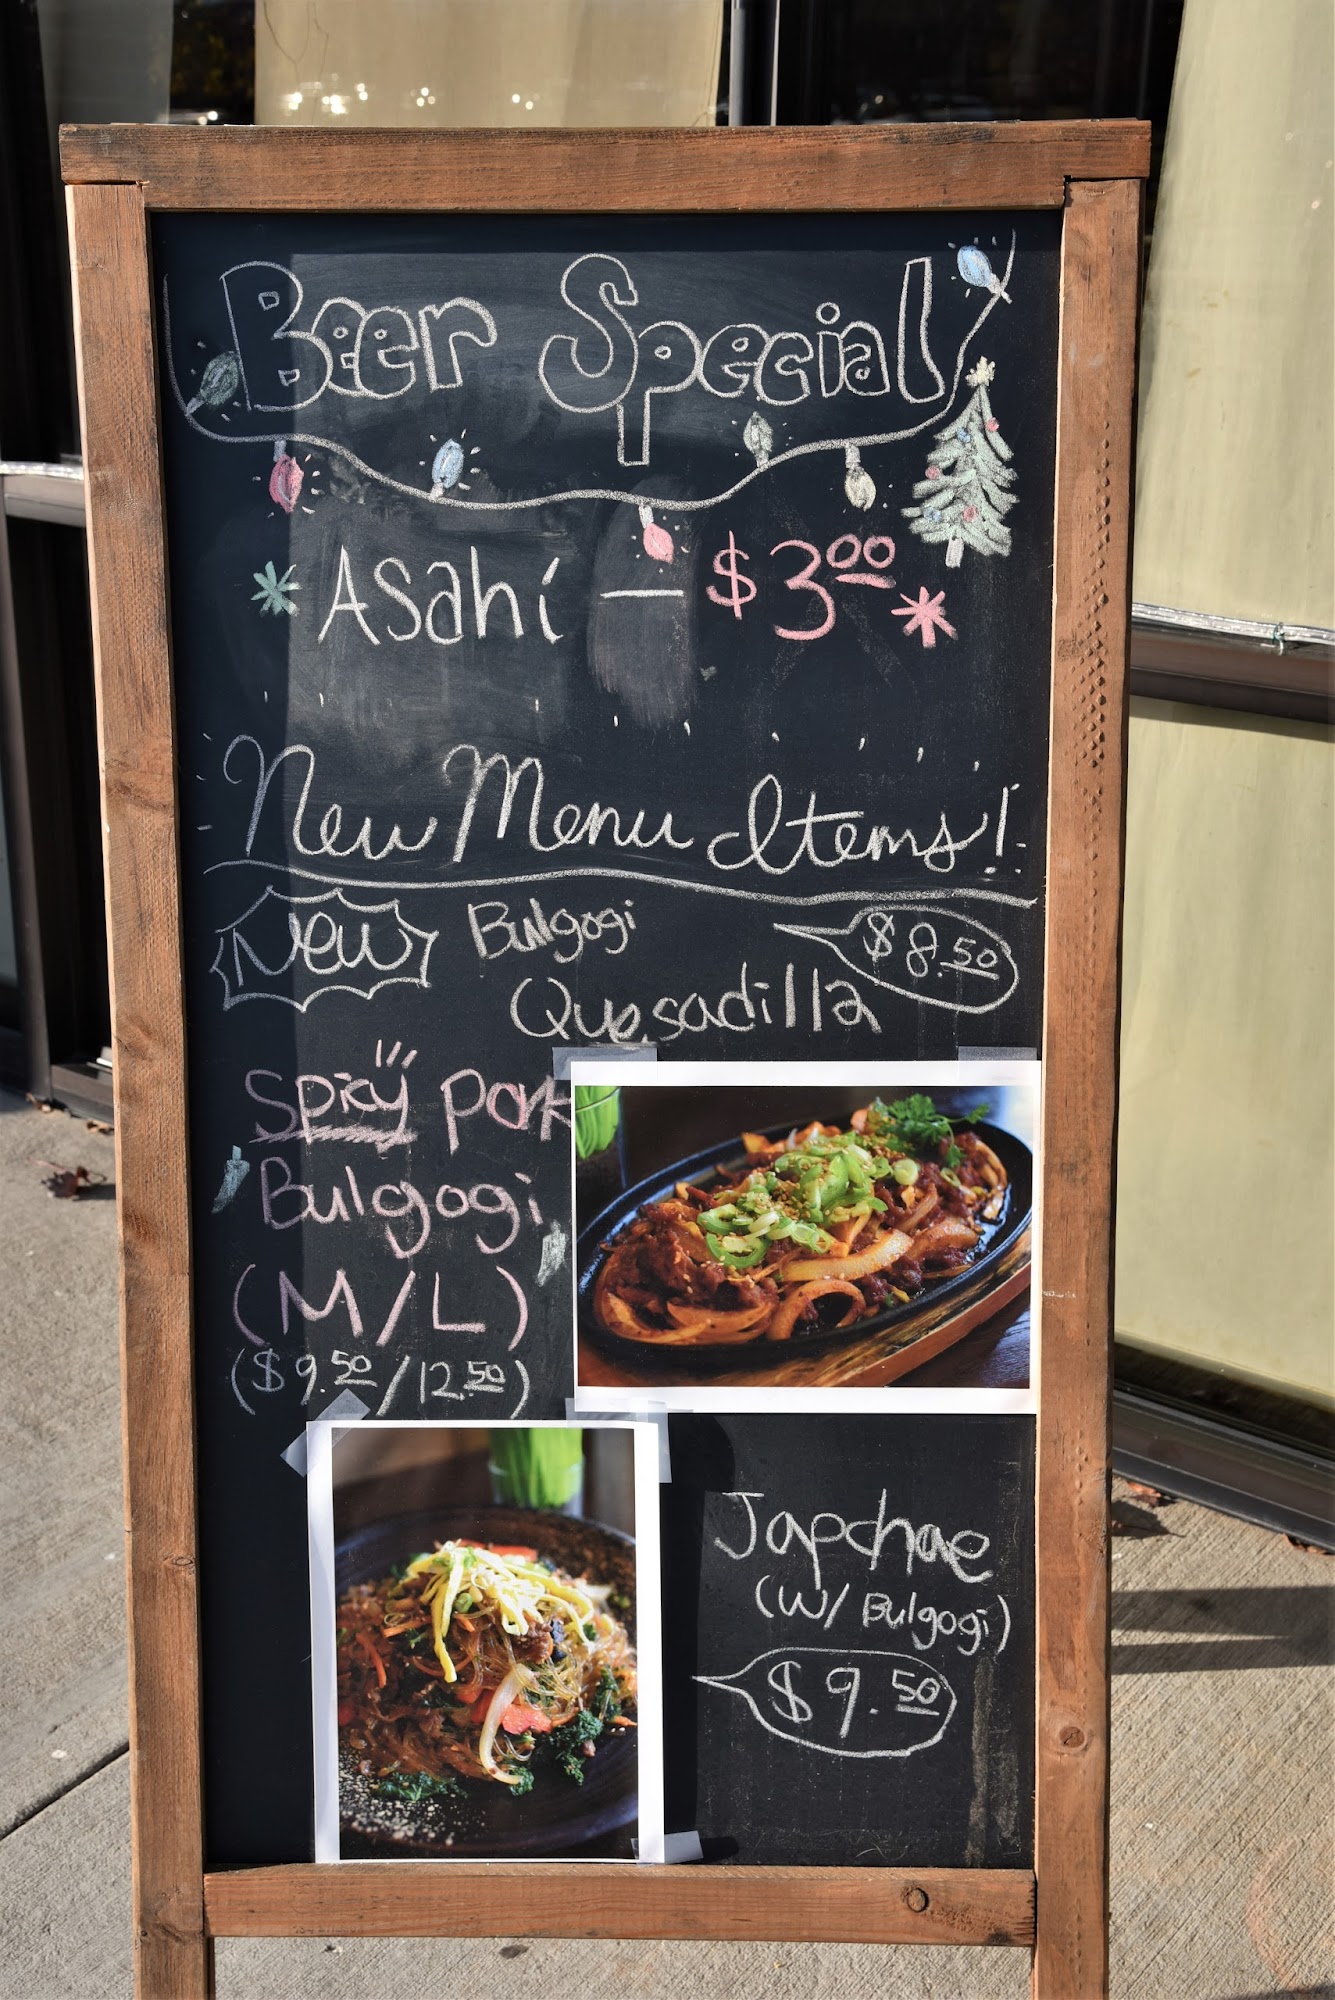 Beer Special
Asahi — $3.00
New Menu Items!
New Bulgogi $8.50
Quesadilla
Spicy Pork
Bulgogi
(M/L)
($9.50/12.50)
Japchae
(w/ Bulgogi)
$9.50